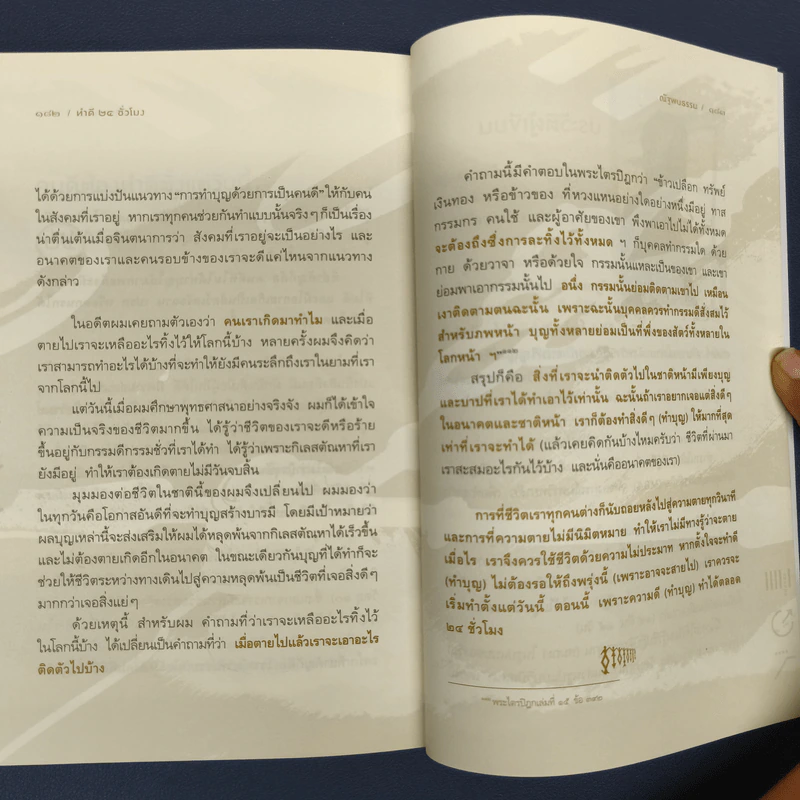 ๑๘๒ / ทำดี ๒๔ ชั่วโมง
ได้ด้วยการแบ่งปันแนวทาง “การทำบุญด้วยการเป็นคนดี” ให้กับคน
ในสังคมที่เราอยู่ หากเราทุกคนช่วยกันทำแบบนั้นจริงๆ ก็เป็นเรื่อง
น่าตื่นเต้นเมื่อจินตนาการว่า สังคมที่เราอยู่จะเป็นอย่างไร และ
อนาคตของเราและคนรอบข้างของเราจะดีแค่ไหนจากแนวทาง
ดังกล่าว
ในอดีตผมเคยถามตัวเองว่า คนเราเกิดมาทำไม และเมื่อ
ตายไปเราจะเหลืออะไรทิ้งไว้ให้โลกนี้บ้าง หลายครั้งผมจึงคิดว่า
เราสามารถทำอะไรได้บ้างที่จะทำให้ยังมีคนระลึกถึงเราในยามที่เรา
จากโลกนี้ไป
แต่วันนี้เมื่อผมศึกษาพุทธศาสนาอย่างจริงจัง ผมก็ได้เข้าใจ
ความเป็นจริงของชีวิตมากขึ้น ได้รู้ว่าชีวิตของเราจะดีหรือร้าย
ขึ้นอยู่กับกรรมดีกรรมชั่วที่เราได้ทำ ได้รู้ว่าเพราะกิเลสตัณหาที่เรา
ยังมีอยู่ ทำให้เราต้องเกิดตายไม่มีวันจบสิ้น
มุมมองต่อชีวิตในชาตินี้ของผมจึงเปลี่ยนไป ผมมองว่า
ในทุกวันคือโอกาสอันดีที่จะทำบุญสร้างบารมี โดยมีเป้าหมายว่า
ผลบุญเหล่านี้จะส่งเสริมให้ผมได้หลุดพ้นจากกิเลสตัณหาได้เร็วขึ้น
และไม่ต้องตายเกิดอีกในอนาคต ในขณะเดียวกันบุญที่ได้ทำก็จะ
ช่วยให้ชีวิตระหว่างทางเดินไปสู่ความหลุดพ้นเป็นชีวิตที่เจอสิ่งดีๆ
มากกว่าเจอสิ่งแย่ๆ
ด้วยเหตุนี้ สำหรับผม คำถามที่ว่าเราจะเหลืออะไรทิ้งไว้
ในโลกนี้บ้าง ได้เปลี่ยนเป็นคำถามที่ว่า เมื่อตายไปแล้วเราจะเอาอะไร
ติดตัวไปบ้าง
ณัฐพบธรรม / ๑๘๓
คำถามนี้มีคำตอบในพระไตรปิฎกว่า “ข้าวเปลือก ทรัพย์
เงินทอง หรือข้าวของ ที่หวงแหนอย่างใดอย่างหนึ่งมีอยู่ ทาส
กรรมกร คนใช้ และผู้อาศัยของเขา พึงพาเอาไปไม่ได้ทั้งหมด
จะต้องถึงซึ่งการละทิ้งไว้ทั้งหมด ฯ ก็บุคคลทำกรรมใด ด้วย
กาย ด้วยวาจา หรือด้วยใจ กรรมนั้นแหละเป็นของเขา และเขา
ย่อมพาเอากรรมนั้นไป อนึ่ง กรรมนั้นย่อมติดตามเขาไป เหมือน
เงาติดตามตนฉะนั้น เพราะฉะนั้นบุคคลควรทำกรรมดีสั่งสมไว้
สำหรับภพหน้า บุญทั้งหลายย่อมเป็นที่พึ่งของสัตว์ทั้งหลายใน
โลกหน้า ฯ”
สรุปก็คือ สิ่งที่เราจะนำติดตัวไปในชาติหน้ามีเพียงบุญ
และบาปที่เราได้ทำเอาไว้เท่านั้น ฉะนั้นถ้าเราอยากเจอแต่สิ่งดีๆ
ในอนาคตและชาติหน้า เราก็ต้องทำสิ่งดีๆ (ทำบุญ) ให้มากที่สุด
เท่าที่เราจะทำได้ (แล้วเคยคิดกันบ้างไหมครับว่า ชีวิตที่ผ่านมา
เราสะสมอะไรกันไว้บ้าง และนั่นคืออนาคตของเรา)
การที่ชีวิตเราทุกคนต่างก็นับถอยหลังไปสู่ความตายทุกวินาที
และการที่ความตายไม่มีนิมิตหมาย ทำให้เราไม่มีทางรู้ว่าจะตาย
เมื่อไร เราจึงควรใช้ชีวิตด้วยความไม่ประมาท หากตั้งใจจะทำดี
(ทำบุญ) ไม่ต้องรอให้ถึงพรุ่งนี้ (เพราะอาจจะสายไป) เราควรจะ
เริ่มทำตั้งแต่วันนี้ ตอนนี้ เพราะความดี (ทำบุญ) ทำได้ตลอด
๒๔ ชั่วโมง
พระไตรปิฎกเล่มที่ ๑๕ ข้อ ๓๙๒